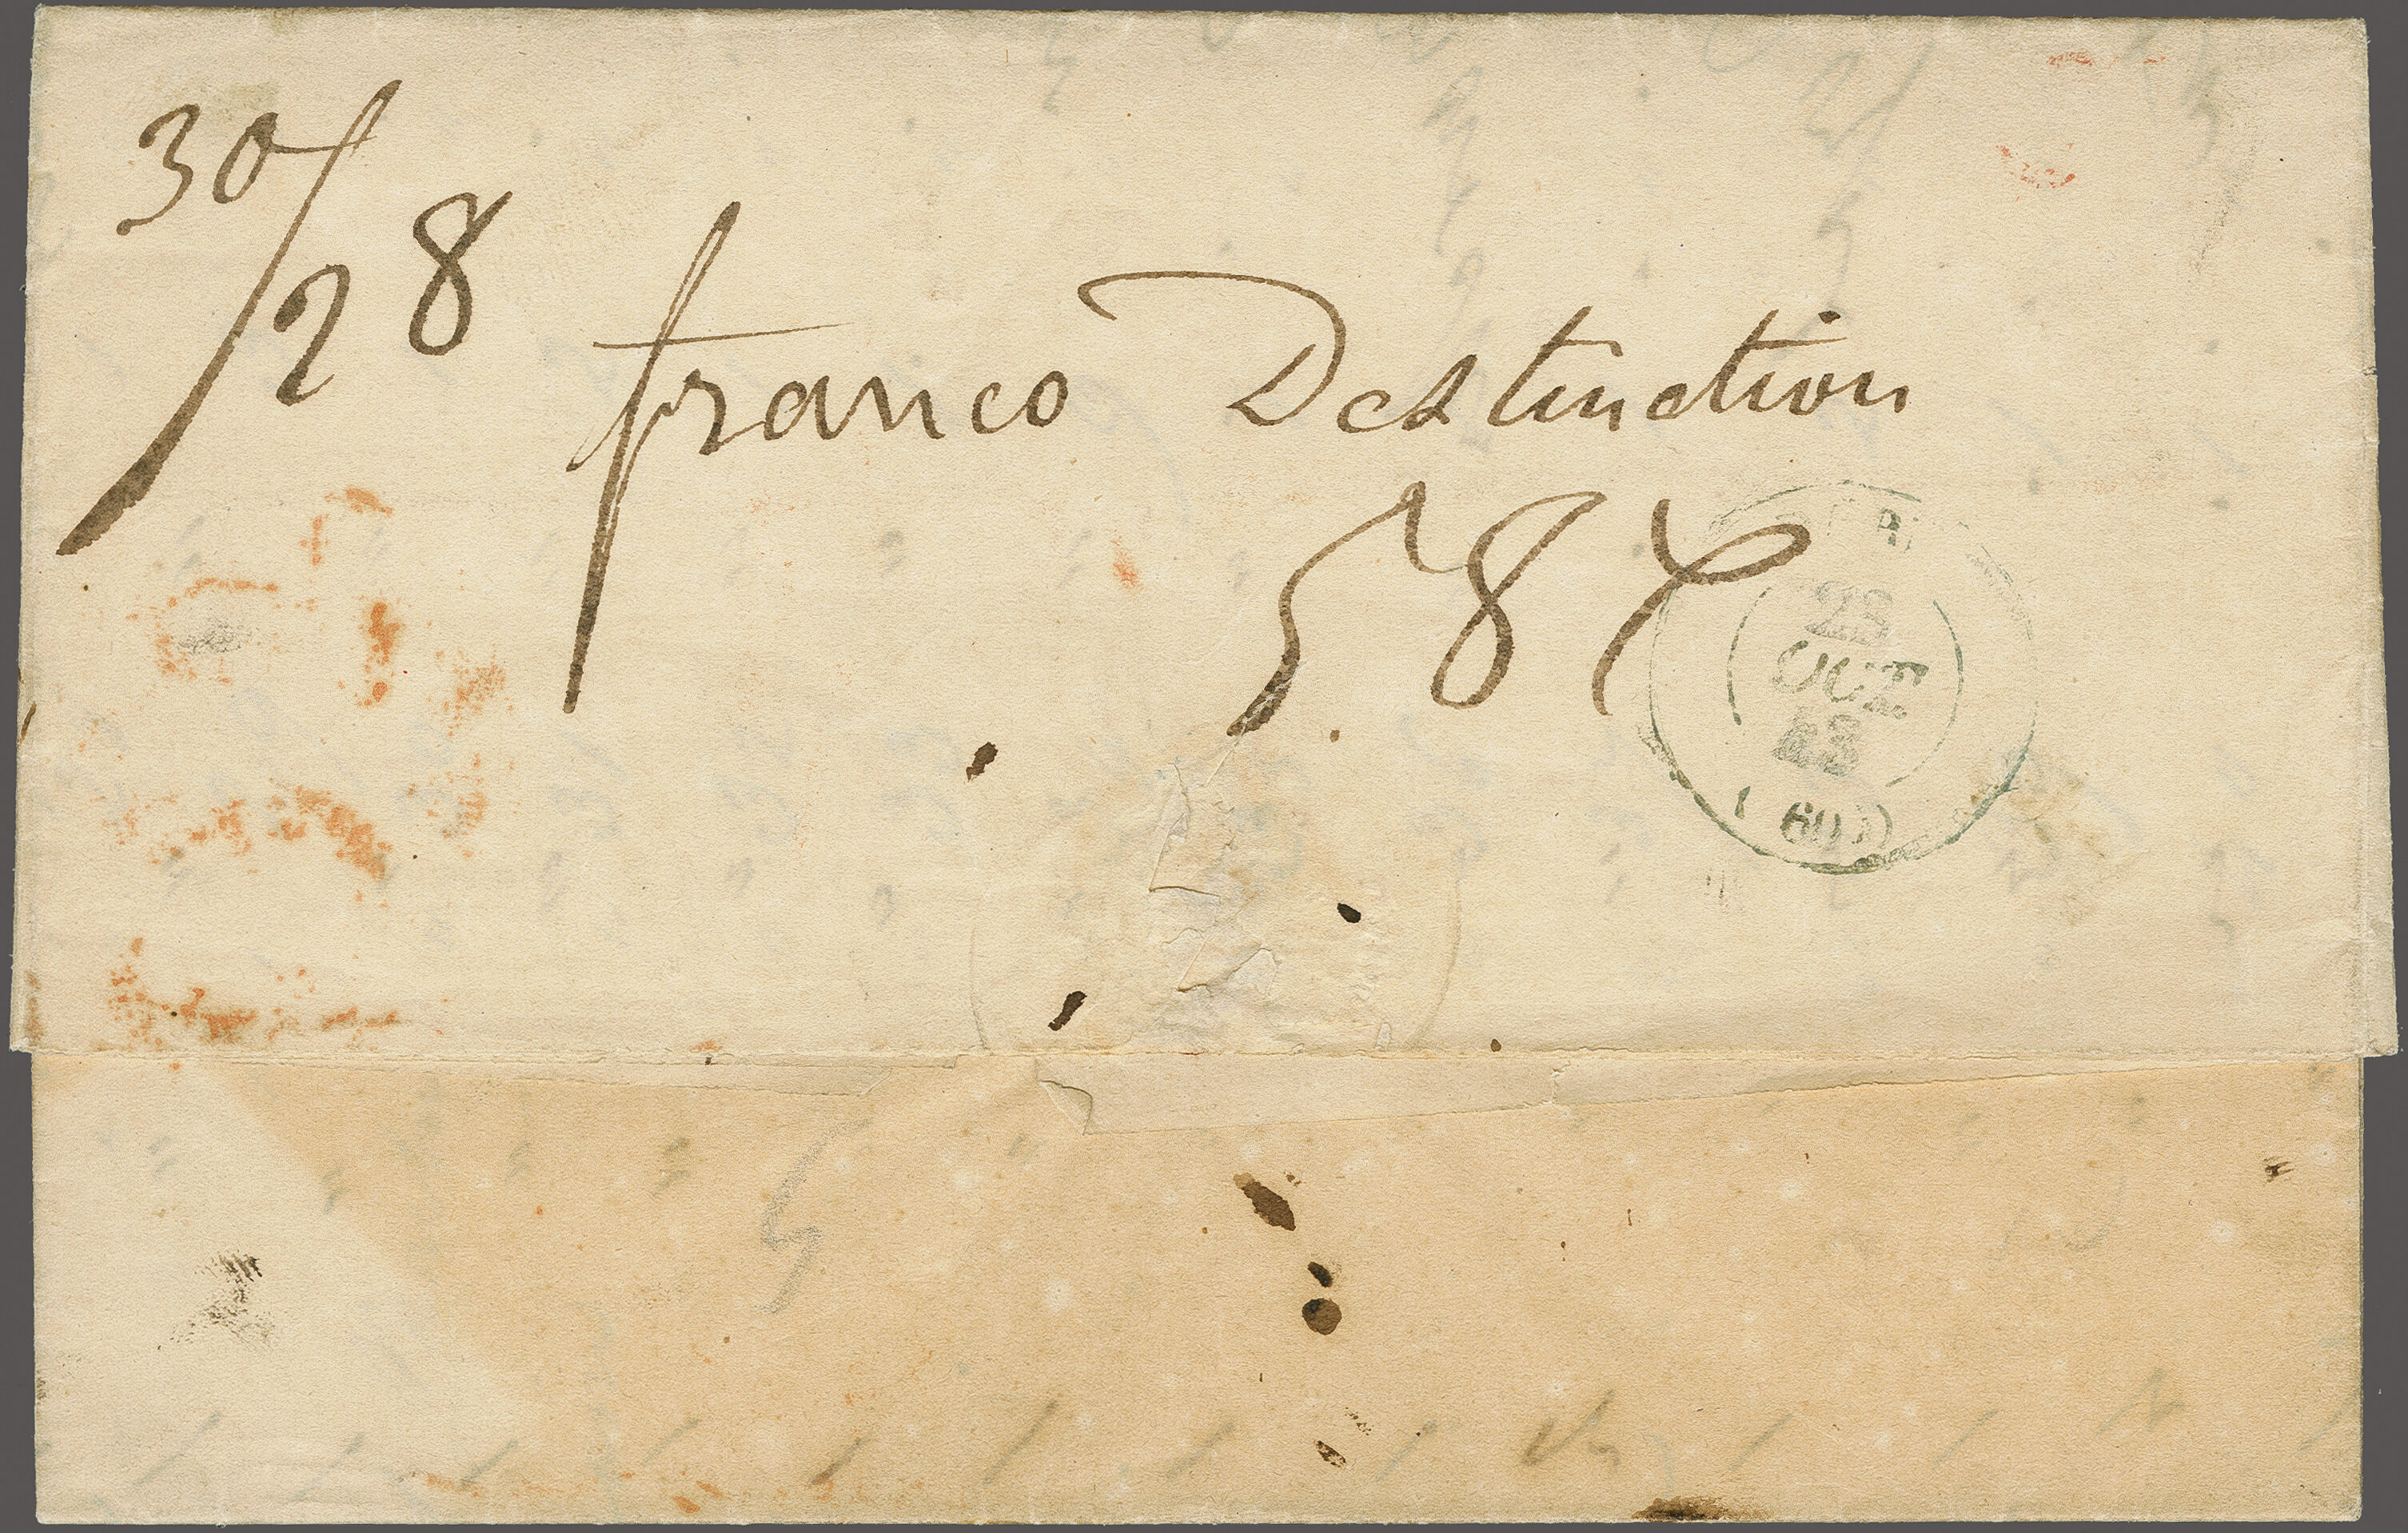 30/28
franco Destination
587
28
OCT
43
(60)
5